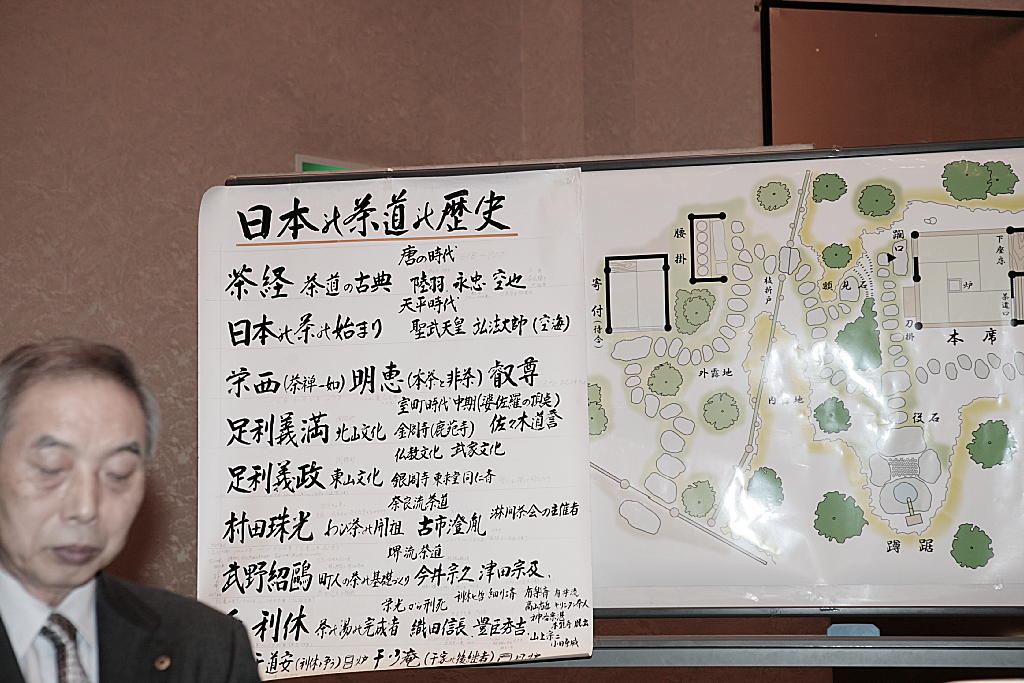 日本の茶道の歴史
唐の時代
茶経 茶道の古典 陸羽 永忠 空也
天平時代
日本の茶の始まり 聖武天皇 弘法大師(空海)
栄西(茶禅一如) 明恵(本茶と非茶) 叡尊
室町時代中期(婆佐羅の頂点)
足利義満 北山文化 金閣寺(鹿苑寺) 佐々木道誉
仏教文化 武家文化
足利義政 東山文化 銀閣寺 東求堂同仁斎
奈良流茶道
村田珠光 わび茶の開祖 古市澄胤 淋間茶会の主催者
堺流茶道
武野紹鷗 町人の茶の基礎づくり 今井宗久 津田宗及
栄光から刑死
利休 茶の湯の完成者 織田信長 豊臣秀吉
高山右近 キリシタン大名
山上宗二
道安 千少庵
腰掛
寄付(待合)
枝折戸
外露地
内露地
額見石
躙口
刀掛
炉
下座床
茶道口
本席
役石
蹲踞